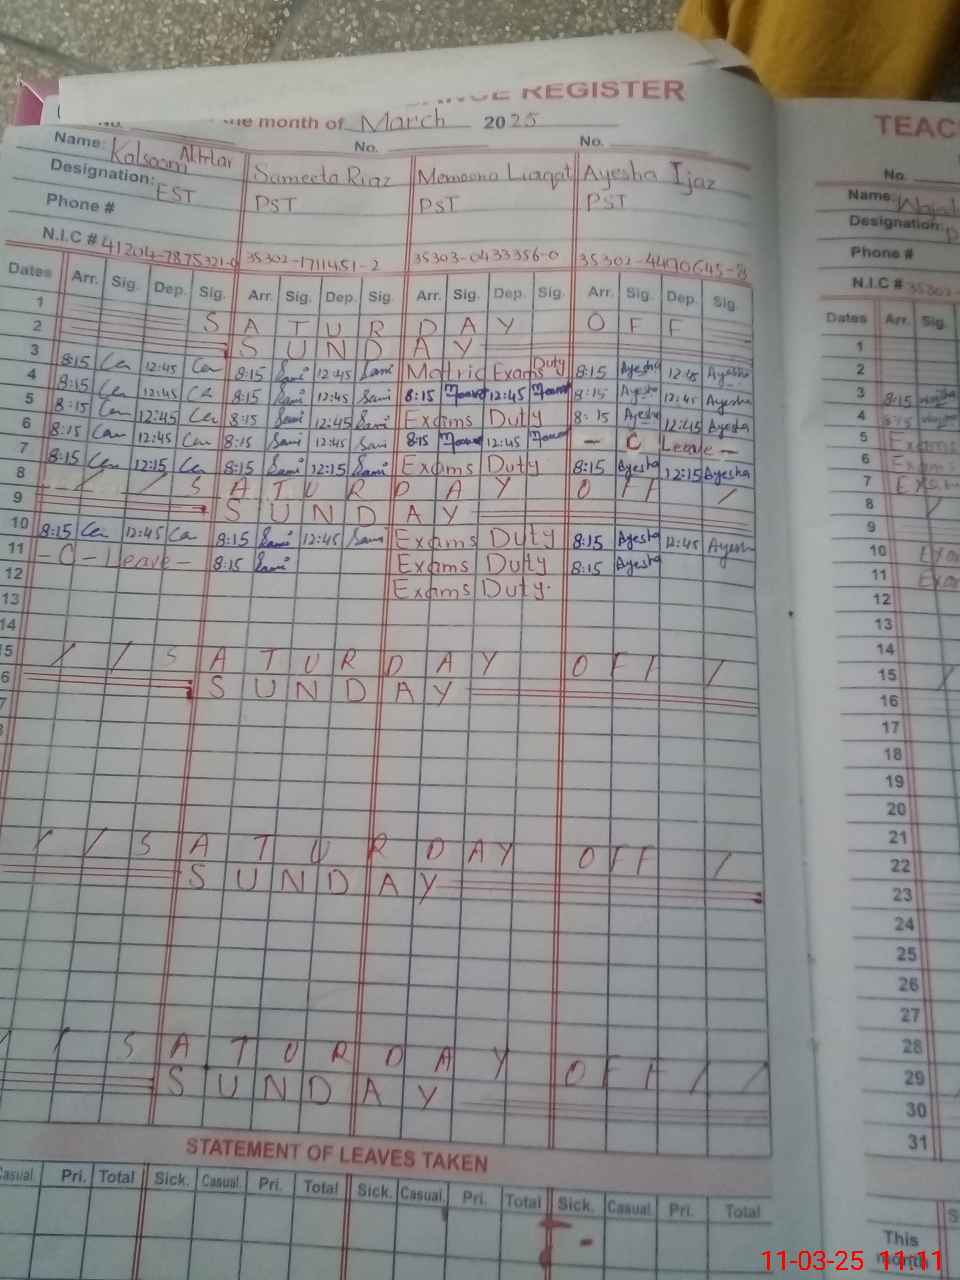 ANCE REGISTER
the month of March 2025
No. No.
Name: Kalsoom Akhtar Sameeta Riaz Memoona Liaqat Ayesha Ijaz
Designation: EST PST PST PST
Phone #
N.I.C # 35302-1711451-2 35303-0433356-0
Dates Arr. Sig. Dep. Sig. Arr. Sig. Dep. Sig. Arr. Sig. Dep. Sig. Arr. Sig. Dep. Sig.
1 SATURDAY OFF
2 SUNDAY
3 8:15 Ca 12:45 Ca 8:15 Sami 12:45 Sami Matric Exams Duty 8:15 Ayesha 12:45 Ayesha
4 8:15 Ca 12:45 Ca 8:15 Sami 12:45 Sami 8:15 12:45 8:15 Ayesha 12:45 Ayesha
5 8:15 Ca 12:45 Ca 8:15 Sami 12:45 Sami Exams Duty 8:15 Ayesha 12:45 Ayesha
6 8:15 Ca 12:45 Ca 8:15 Sami 12:45 Sami 8:15 12:45 - C Leave -
7 8:15 Ca 12:15 Ca 8:15 Sami 12:15 Sami Exams Duty 8:15 Ayesha 12:15 Ayesha
8 / / SATURDAY OFF /
9 SUNDAY
10 8:15 Ca 12:45 Ca 8:15 Sami 12:45 Sami Exams Duty 8:15 Ayesha 12:45 Ayesha
11 - C - Leave - 8:15 Sami Exams Duty 8:15 Ayesha
12 Exams Duty.
13
14
15 / / SATURDAY OFF /
6 SUNDAY
7
/ / SATURDAY OFF /
SUNDAY
/ / SATURDAY OFF / /
SUNDAY
STATEMENT OF LEAVES TAKEN
Casual. Pri. Total Sick. Casual. Pri. Total Sick. Casual. Pri. Total Sick. Casual. Pri. Total
TEAC
No.
Name:
Designation:
Phone #
N.I.C # 35302
Dates Arr. Sig.
1
2
3 8:15
4 8:15
5 Exams
6 Exam
7 Exam
8 /
9
10 Exa
11 Exa
12
13
14
15 /
16
17
18
19
20
21
22
23
24
25
26
27
28
29
30
31
S
This
month
11-03-25 11:11